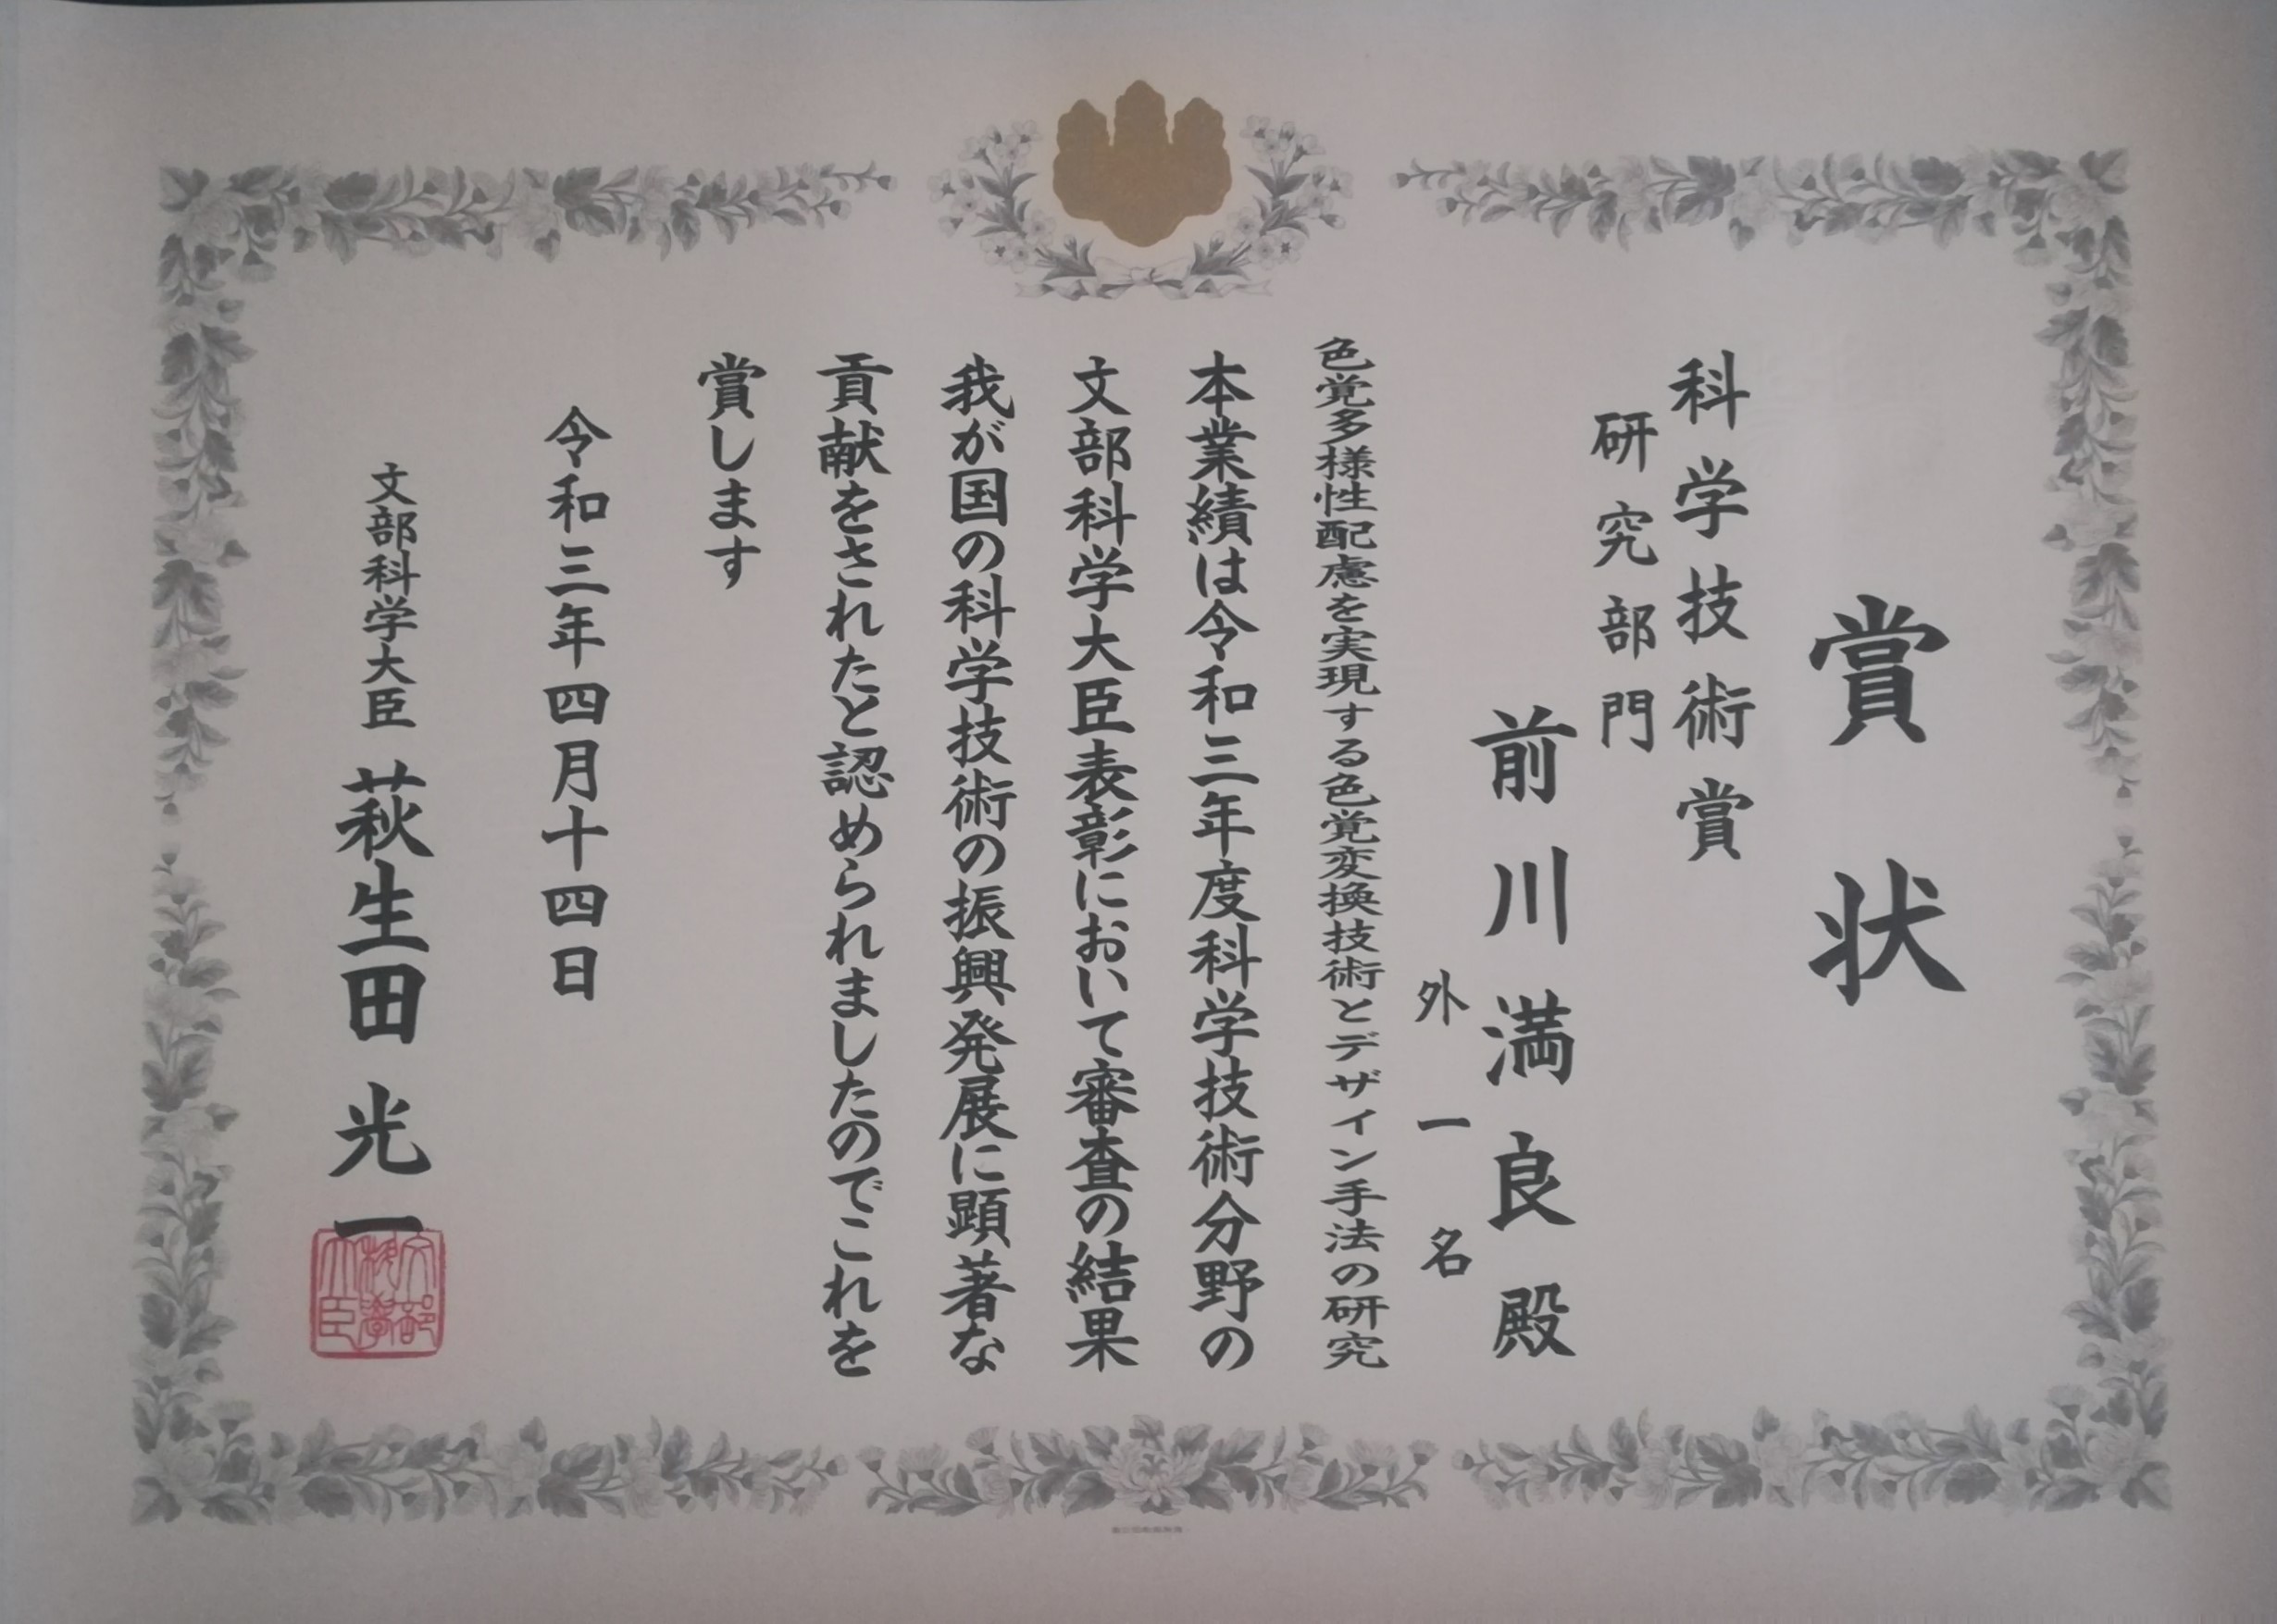 賞状
科学技術賞
研究部門
前川満良殿
外一名
色覚多様性配慮を実現する色覚変換技術とデザイン手法の研究
本業績は令和三年度科学技術分野の
文部科学大臣表彰において審査の結果
我が国の科学技術の振興発展に顕著な
貢献をされたと認められましたのでこれを
賞します
令和三年四月十四日
文部科学大臣 萩生田光一
文部科学大臣